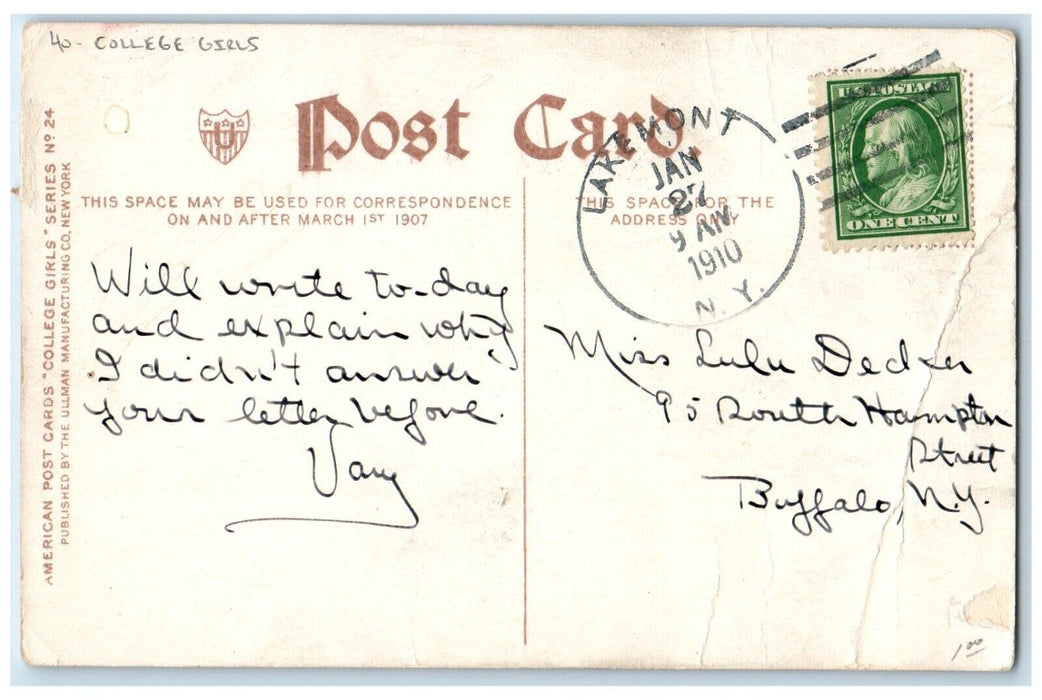 40- COLLEGE GIRLS
Post Card.
U
THIS SPACE MAY BE USED FOR CORRESPONDENCE
ON AND AFTER MARCH 1ST 1907
THIS SPACE FOR THE
ADDRESS ONLY
LAKEMONT
JAN
27
9 AM
1910
N. Y.
U.S. POSTAGE
ONE CENT
AMERICAN POST CARDS "COLLEGE GIRLS" SERIES Nº 24
PUBLISHED BY THE ULLMAN MANUFACTURING CO, NEW YORK
Will write to-day
and explain why
I didn't answer
your letter before.
Miss Lulu Decker
95 South Hampton
Street
Buffalo, N.Y.
1.00